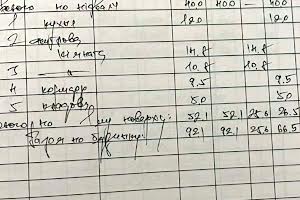 по підвалу 400 400 — 400
1 кухня 120
2 житлова
кімната 14.8 14.8
3 — " — 10.8 10.8
4 коридор 9.5 9.5
5 кладова 5.0 5.0
по поверху: 52.1 52.1 25.6 26.5
Разом по будинку: 92.1 92.1 25.6 66.5